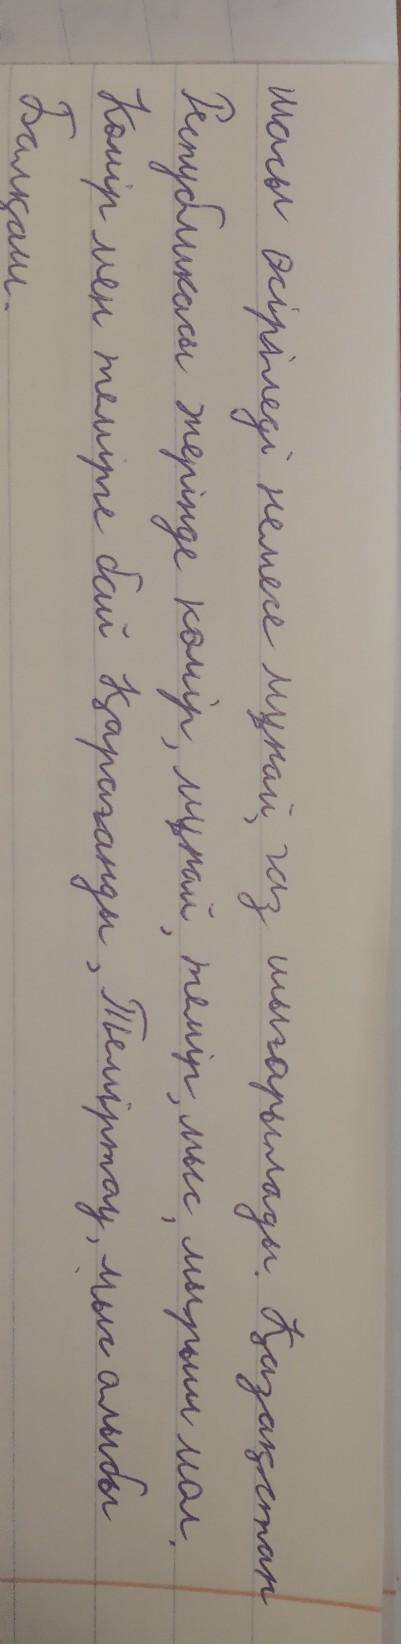 шасы өсіріледі немесе мұнай, газ шығарылады. Қазақстан
Республикасы жерінде көмір, мұнай, темір, мыс, мырыш мол.
Көмір мен темірге бай Қарағанды, Теміртау, мыс алыбы
Балқаш.